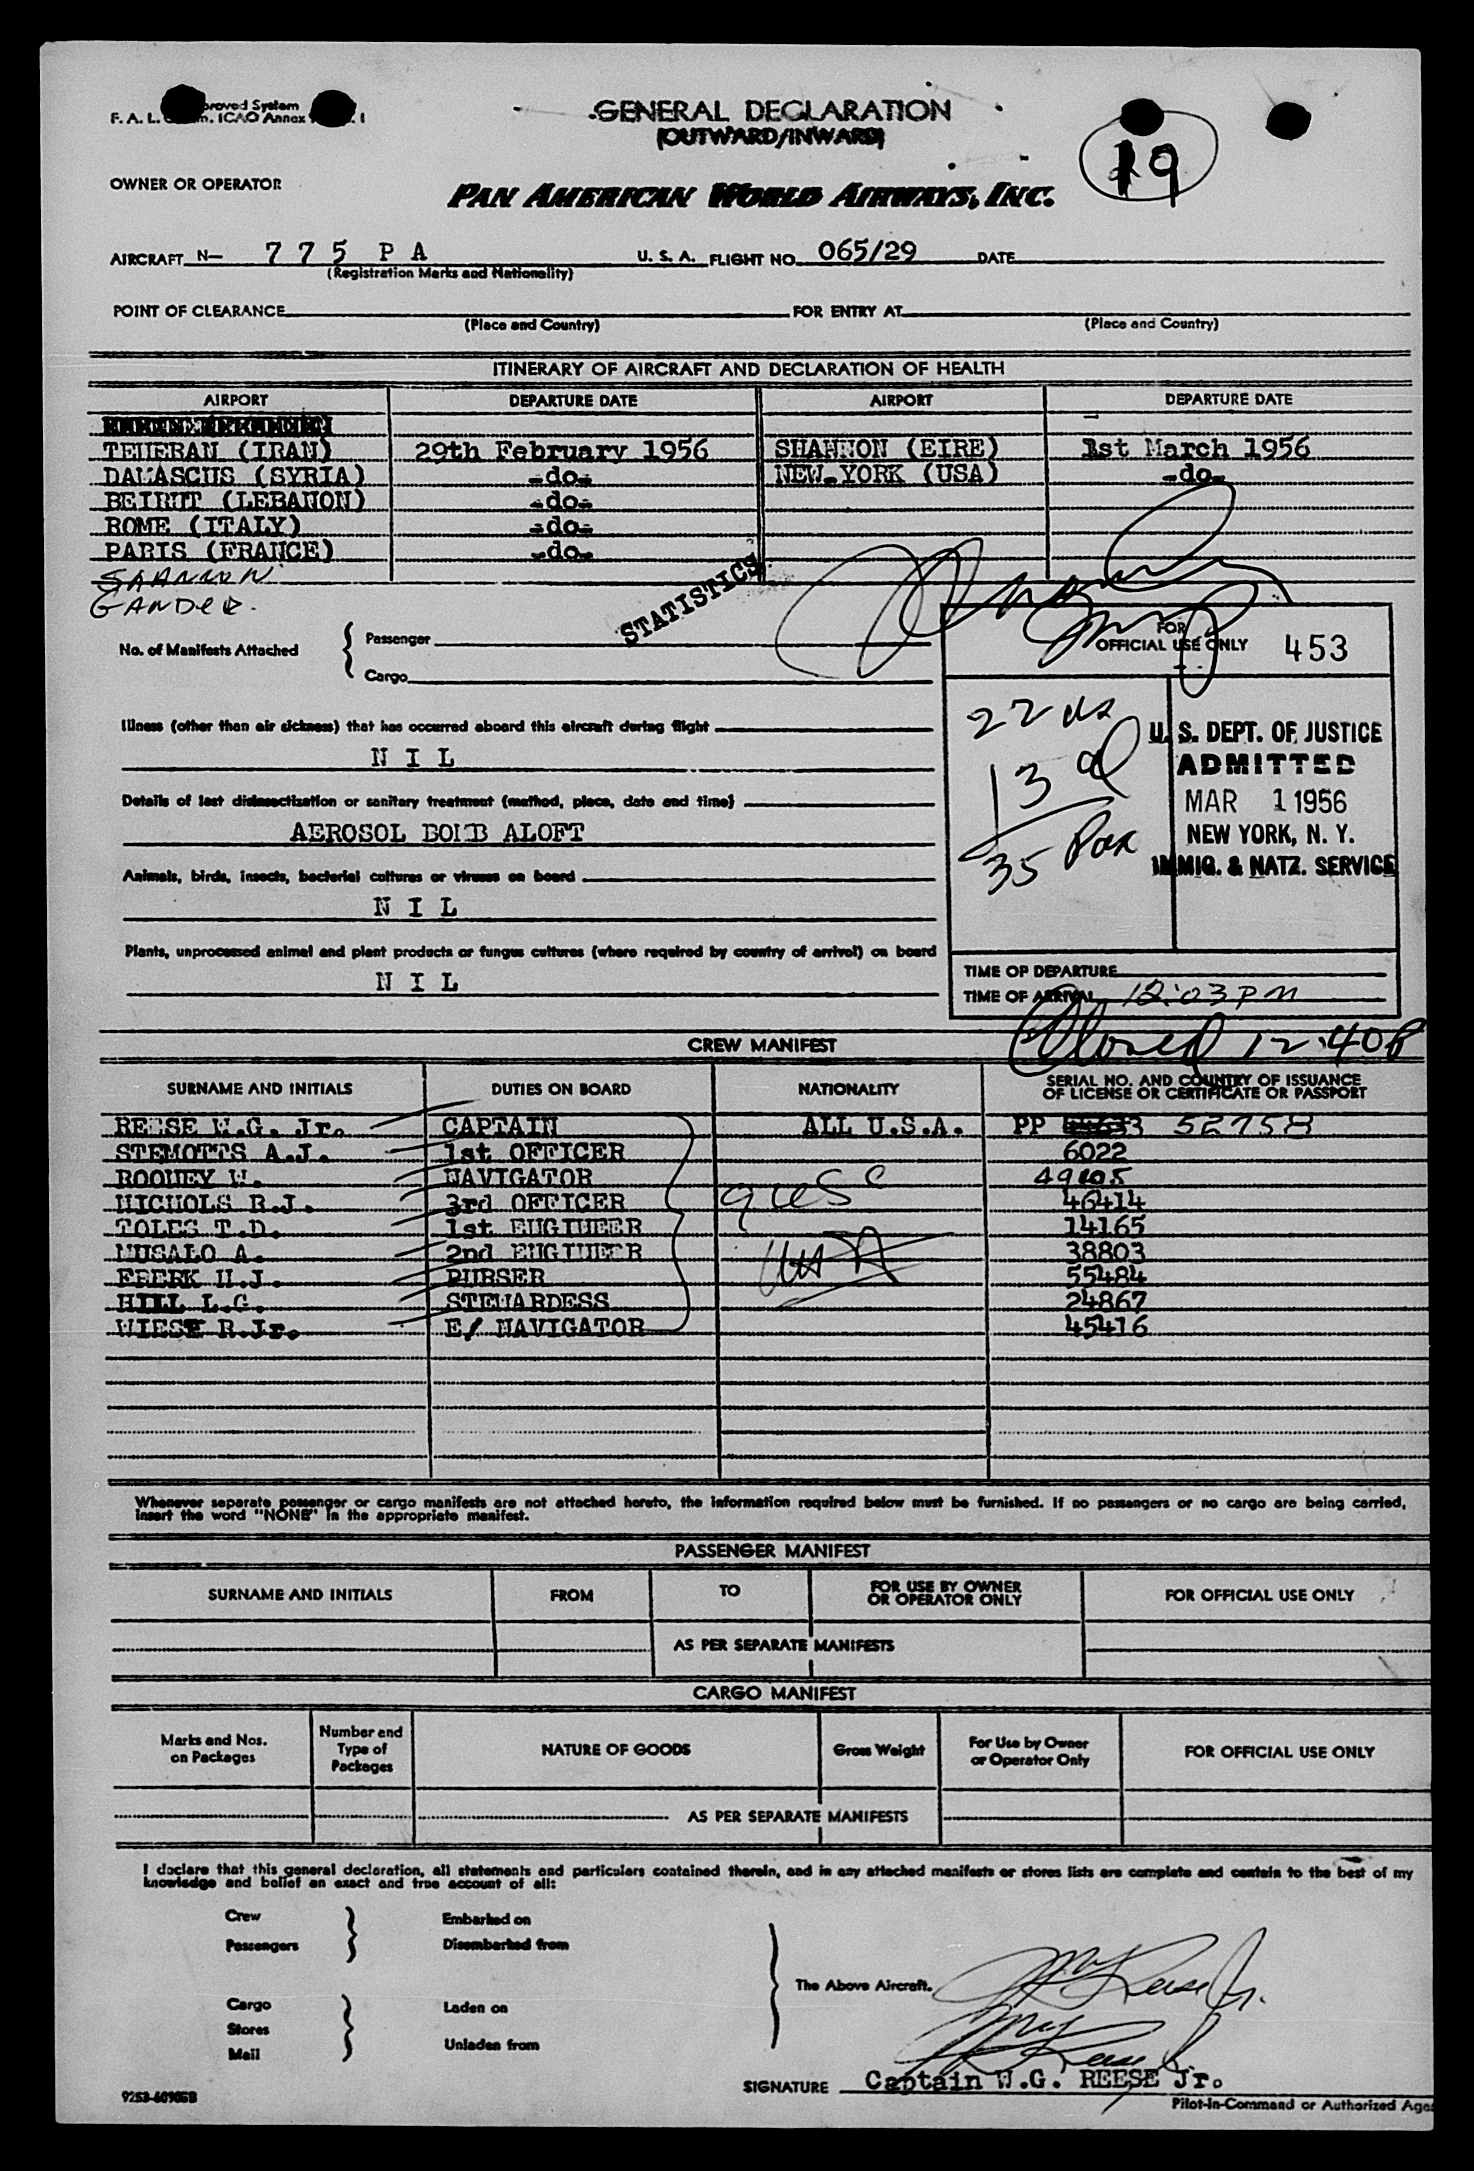 GENERAL DECLARATION
(OUTWARD/INWARD)
F. A. L. ICAO Annex
19
OWNER OR OPERATOR
PAN AMERICAN WORLD AIRWAYS, INC.
AIRCRAFT N— 7 7 5 P A U. S. A. FLIGHT NO. 065/29 DATE
(Registration Marks and Nationality)
POINT OF CLEARANCE FOR ENTRY AT
(Place and Country) (Place and Country)
ITINERARY OF AIRCRAFT AND DECLARATION OF HEALTH
AIRPORT DEPARTURE DATE AIRPORT DEPARTURE DATE
TEHERAN (IRAN) 29th February 1956 SHANNON (EIRE) 1st March 1956
DAMASCUS (SYRIA) -do- NEW-YORK (USA) -do-
BEIRUT (LEBANON) -do-
ROME (ITALY) -do-
PARIS (FRANCE) -do-
SHANNON
GANDER.
STATISTICS
No. of Manifests Attached { Passenger
Cargo
FOR
OFFICIAL USE ONLY 453
Illness (other than air sickness) that has occurred aboard this aircraft during flight
N I L
Details of last disinsectization or sanitary treatment (method, place, date and time)
AEROSOL BOMB ALOFT
Animals, birds, insects, bacterial cultures or viruses on board
N I L
Plants, unprocessed animal and plant products or fungus cultures (where required by country of arrival) on board
N I L
22 us
13 al
35 Pax
U. S. DEPT. OF JUSTICE
ADMITTED
MAR 1 1956
NEW YORK, N. Y.
IMMIG. & NATZ. SERVICE
TIME OF DEPARTURE
TIME OF ARRIVAL 12:03 PM
Closed 12:40P
CREW MANIFEST
SURNAME AND INITIALS DUTIES ON BOARD NATIONALITY SERIAL NO. AND COUNTRY OF ISSUANCE
OF LICENSE OR CERTIFICATE OR PASSPORT
REESE W.G. Jr. CAPTAIN ALL U.S.A. PP 52758
STEMOTTS A.J. 1st OFFICER 6022
ROONEY W. NAVIGATOR
NICHOLS R.J. 3rd OFFICER 46414
TOLES T.D. 1st ENGINEER 14165
MUSALO A. 2nd ENGINEER 38803
FRERK H.J. PURSER 55484
HILL L.G. STEWARDESS 24867
WIESE R.Jr. E/ NAVIGATOR 45416
9 USC
Whenever separate passenger or cargo manifests are not attached hereto, the information required below must be furnished. If no passengers or no cargo are being carried,
insert the word "NONE" in the appropriate manifest.
PASSENGER MANIFEST
SURNAME AND INITIALS FROM TO FOR USE BY OWNER
OR OPERATOR ONLY FOR OFFICIAL USE ONLY
AS PER SEPARATE MANIFESTS
CARGO MANIFEST
Marks and Nos.
on Packages
Number and
Type of
Packages
NATURE OF GOODS Gross Weight For Use by Owner
or Operator Only FOR OFFICIAL USE ONLY
AS PER SEPARATE MANIFESTS
I declare that this general declaration, all statements and particulars contained therein, and in any attached manifests or stores lists are complete and contain to the best of my
knowledge and belief an exact and true account of all:
Crew Embarked on
Passengers Disembarked from
The Above Aircraft.
Cargo Laden on
Stores
Mail Unladen from
SIGNATURE Captain W.G. REESE Jr.
9253-60905B
Pilot-in-Command or Authorized